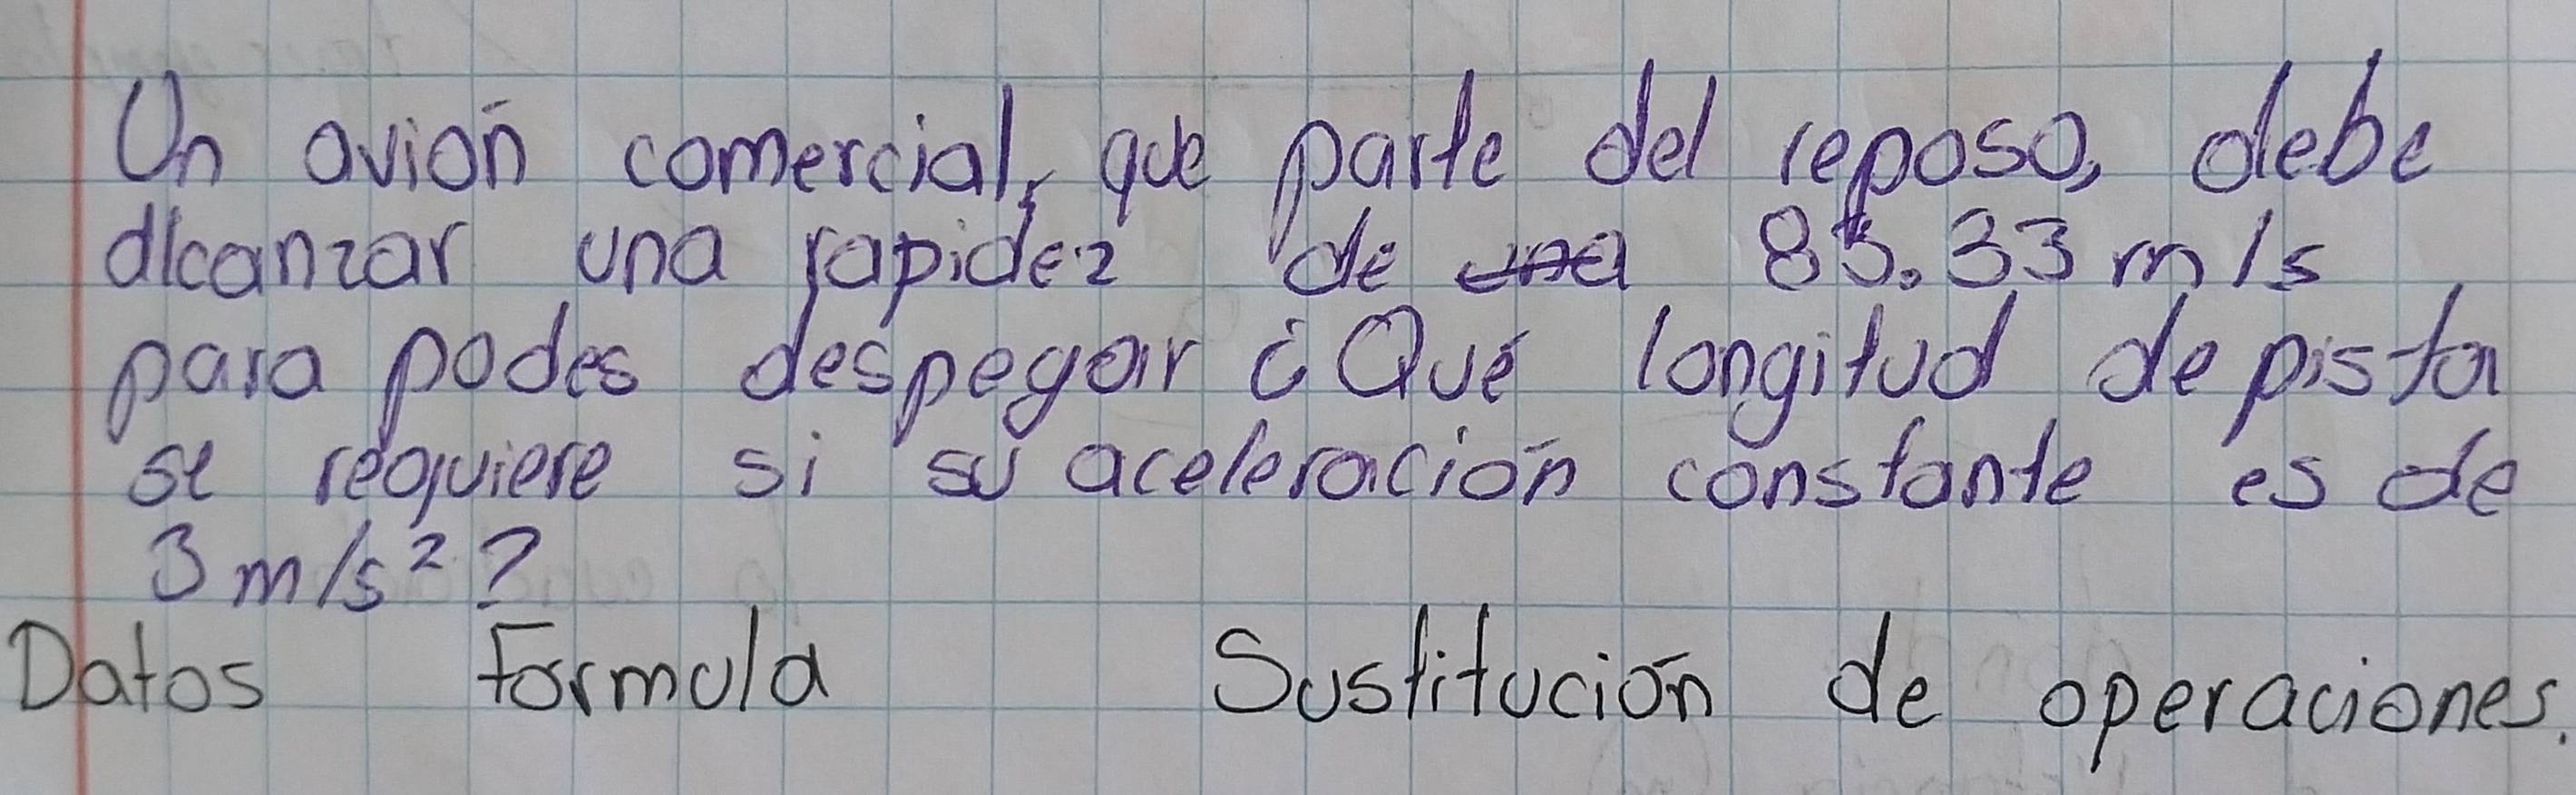 Un avión comercial, que parte del reposo, debe
alcanzar una rapidez de una 83.33 m/s
para podes despegar ¿Qué longitud de pista
se requiere si su aceleración constante es de
3 m/s² ?
Datos Formula Sustitución de operaciones.